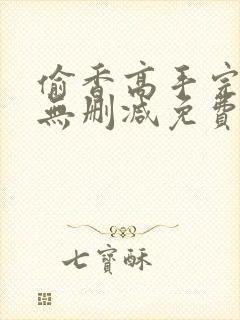 偷香高手完
無刪減免費
七寶酥